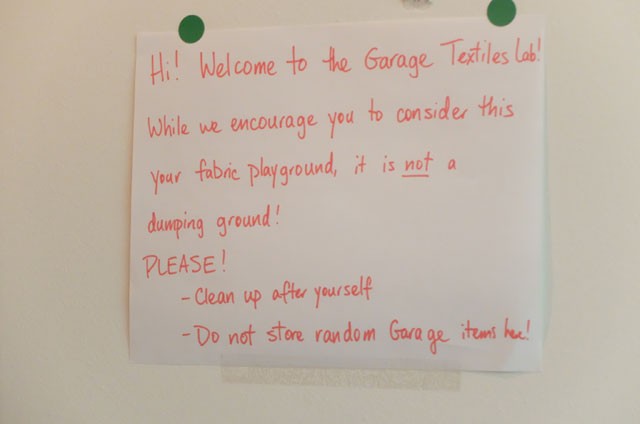 Hi! Welcome to the Garage Textiles Lab!
While we encourage you to consider this
your fabric playground, it is not a
dumping ground!
PLEASE!
- Clean up after yourself
- Do not store random Garage items here!